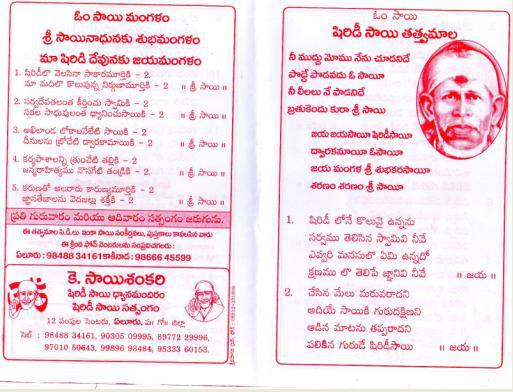 ఓం సాయి మంగళం
శ్రీ సాయినాధునకు శుభమంగళం
మా షిరిడి దేవునకు జయమంగళం
1. షిరిడీలో వెలసినా సాకారమూర్తికి - 2
మా మదిలో కొలువున్న నిర్గుణామూర్తికి - 2 ॥ శ్రీ సాయి ॥
2. సర్వదేవతలంత కీర్తించు స్వామికి - 2
సకల సాధువులంత ధ్యానించుసాయికి - 2 ॥ శ్రీ సాయి ॥
3. అఖిలాండ లోకాలనేలేటి సాయికి - 2
దీనులను బ్రోచేటి ద్వారకామాయికి - 2 ॥ శ్రీ సాయి ॥
4. కర్మపాశాలన్ని త్రుంచేటి తల్లికి - 2
జన్మరాహిత్యము నొసగేటి తండ్రికి - 2 ॥ శ్రీ సాయి ॥
5. కరుణతో అలరారు కారుణ్యమూర్తికి - 2
జ్ఞానతేజాలను వెదజల్లు శక్తికి - 2 ॥ శ్రీ సాయి ॥
ప్రతి గురువారం మరియు ఆదివారం సత్సంగం జరుగును.
ఈ తత్వమాల సి.డి.లు ఇంకా సాయి సంకీర్తనలు, పుస్తకాలు కావలసిన వారు
ఈ క్రింద ఫోన్ నెంబరులను సంప్రదించగలరు :
ఏలూరు : 98488 34161 కాకినాడ : 98666 45599
కె. సాయిశంకరి
షిరిడీ సాయి ధ్యానమందిరం
షిరిడీ సాయి సత్సంగం
12 పంపుల సెంటరు, ఏలూరు, ప॥ గో॥ జిల్లా
సెల్ : 98488 34161, 90305 09995, 89772 29996,
97010 50643, 99896 93484, 95333 60153.
ఓం సాయి
షిరిడీ సాయి తత్వమాల
నీ ముద్దు మోము నేను చూడనిదే
పొద్దే పోడవదు ఓ సాయీ
నీ లీలలు నే పాడనిదే
బ్రతుకెందు కురా శ్రీ సాయి
జయ జయసాయీ షిరిడీసాయీ
ద్వారకమాయీ ఓసాయీ
జయ మంగళ శ్రీ శుభకరసాయీ
శరణం శరణం శ్రీ సాయీ
1. షిరిడీ లోనే కొలువై ఉన్నను
సర్వము తెలిసిన స్వామివి నీవే
ఎవ్వరి మనసులో ఏమి ఉన్నదో
క్షణము లో తెలిపే జ్ఞానివి నీవే ॥ జయ ॥
2. చేసిన మేలు మరువరాదని
అదియే సాయికి గురుదక్షిణని
ఆడిన మాటను తప్పరాదని
పలికిన గురుదే షిరిడీసాయి ॥ జయ ॥